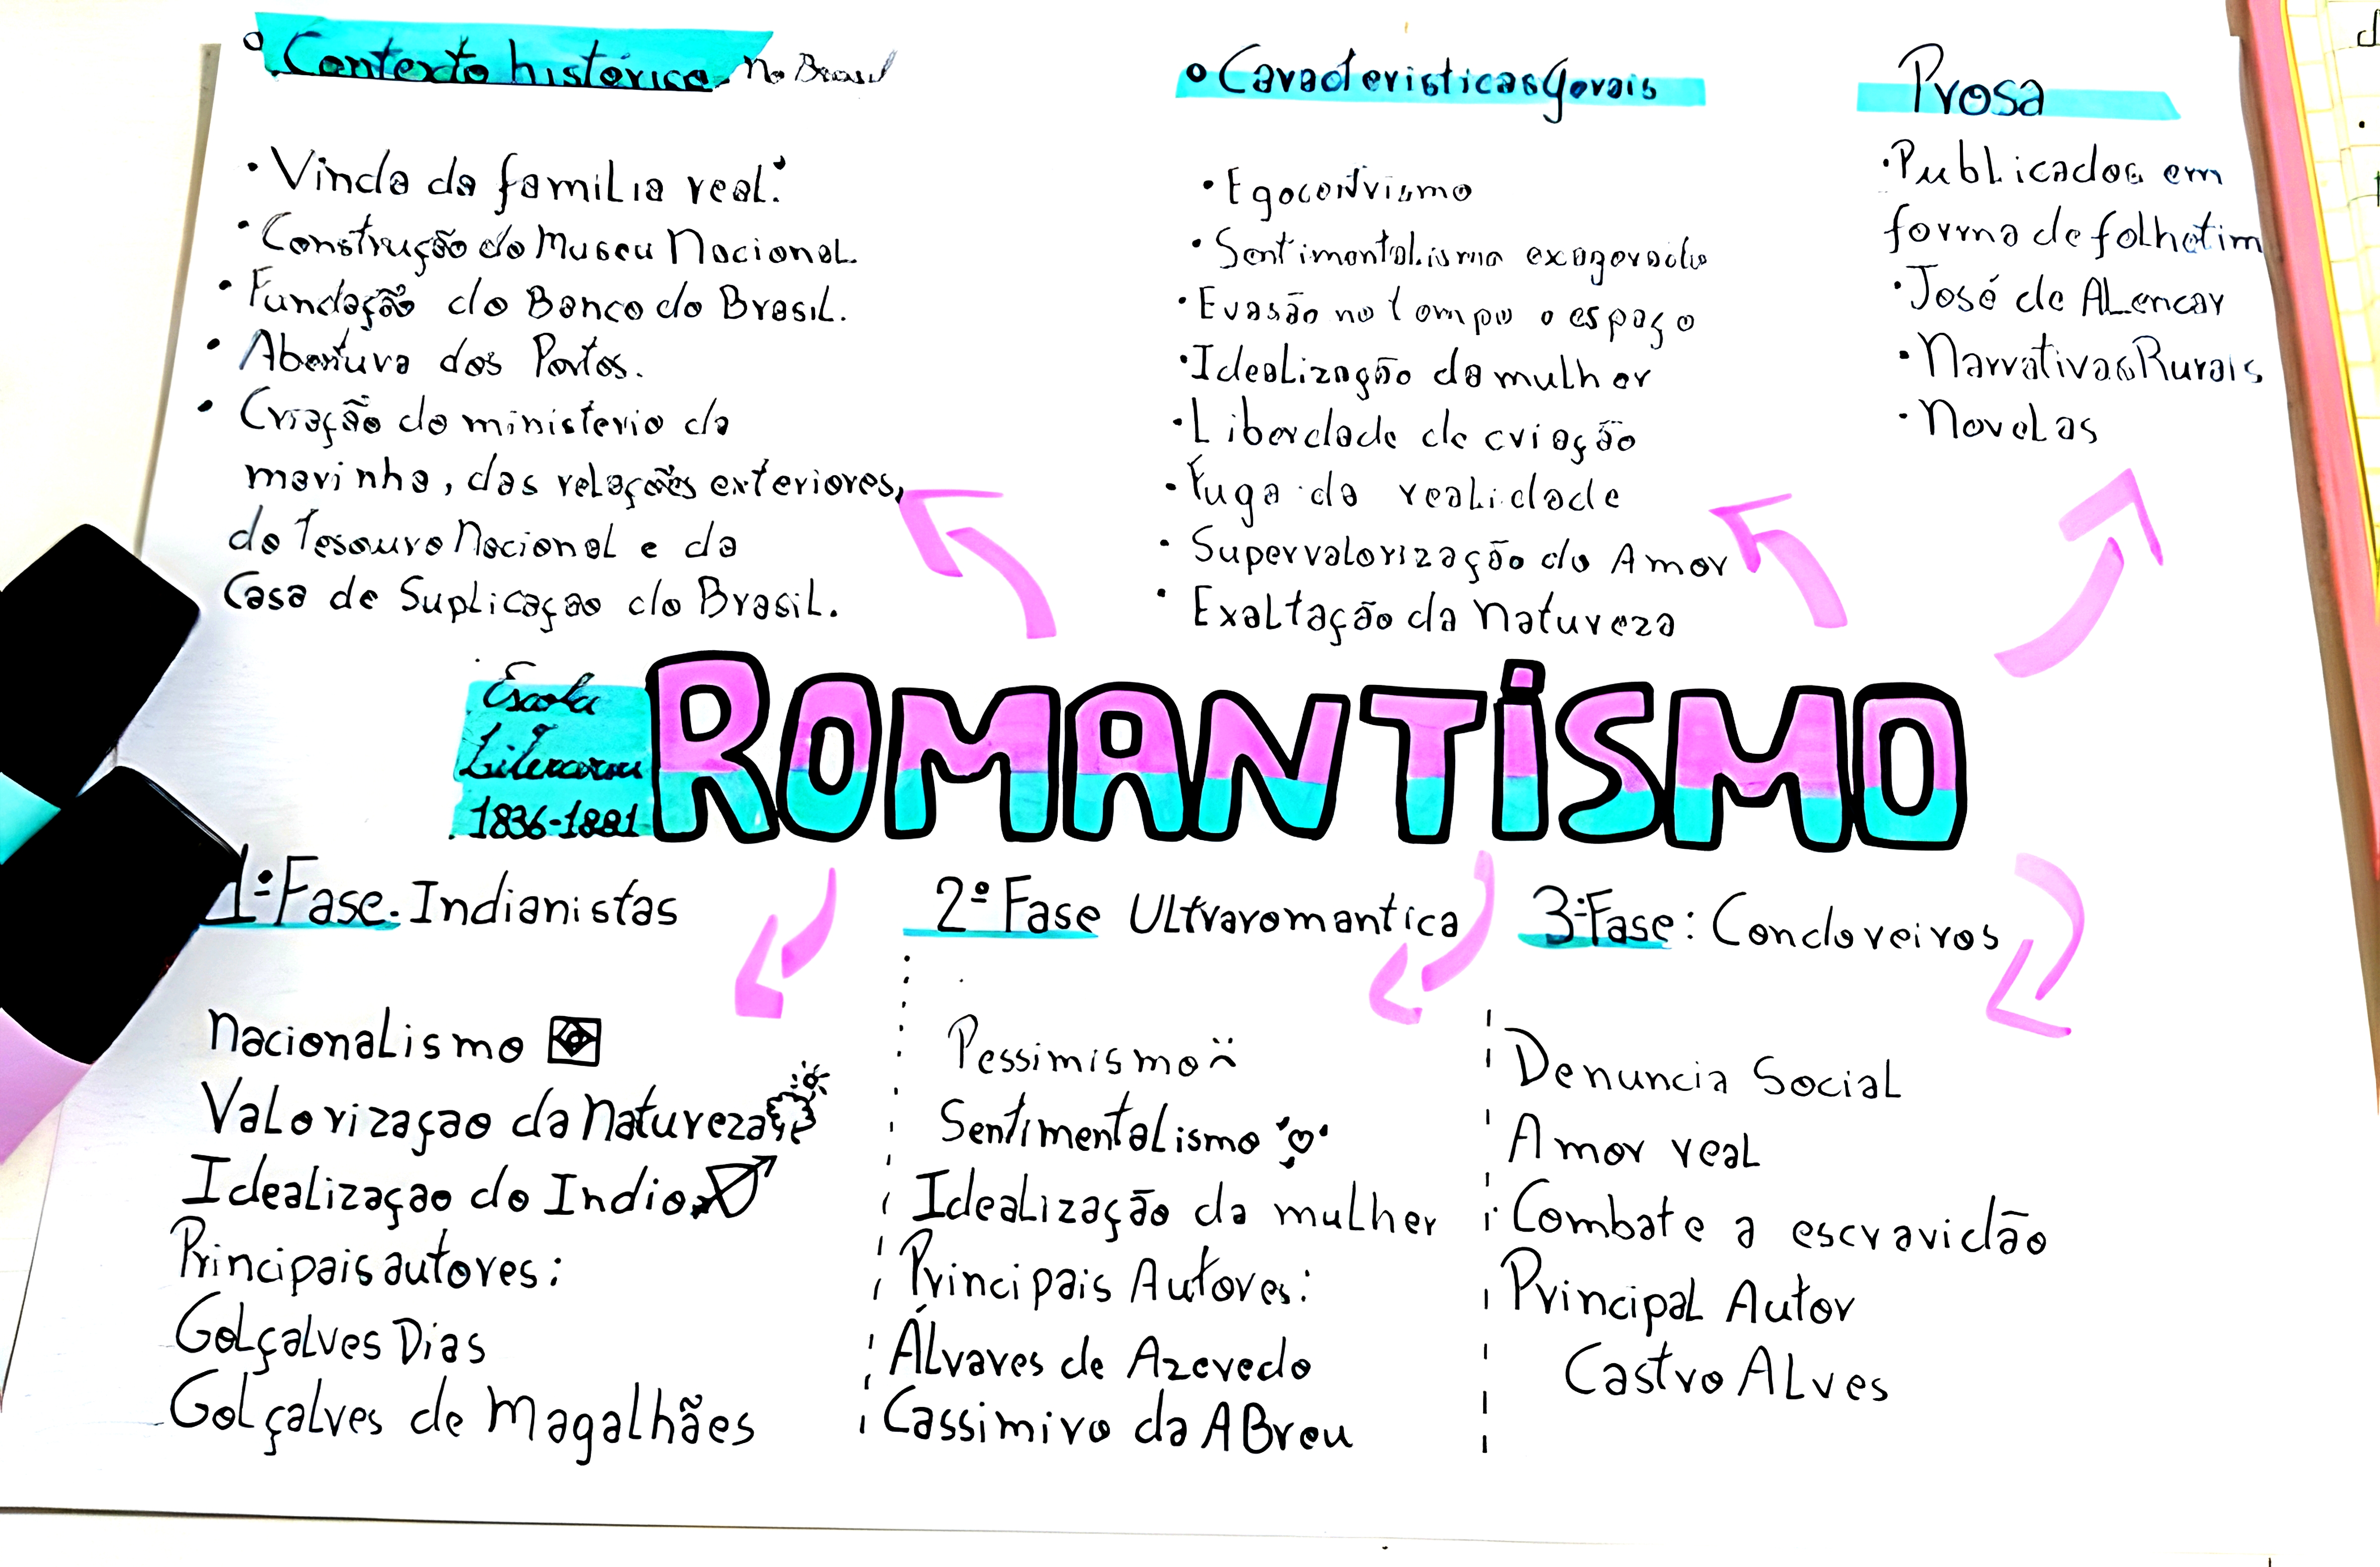 Contexto histórico no Brasil
• Vinda da família real.
• Construção do Museu Nacional.
• Fundação do Banco do Brasil.
• Abertura dos Portos.
• Criação do ministerio da
marinha, das relações exteriores,
do Tesouro Nacional e da
Casa de Suplicaçao do Brasil.
Características Gerais
• Egocentrismo
• Sentimentalismo exagerado
• Evasão no tempo e espaço
• Idealização da mulher
• Liberdade de criação
• Fuga da realidade
• Supervalorização do Amor
• Exaltação da Natureza
Prosa
• Publicados em
forma de folhetim
• José de Alencar
• Narrativas Rurais
• Novelas
Escola
Literaria
1836-1881
ROMANTISMO
1ª Fase. Indianistas
Nacionalismo
Valorizaçao da Natureza
Idealizaçao do Indio
Principais autores:
Golçalves Dias
Golçalves de Magalhães
2º Fase Ultraromantica
Pessimismo
Sentimentalismo
Idealização da mulher
Principais Autores:
Álvares de Azevedo
Cassimiro da Abreu
3ªFase: Condoreiros
Denuncia Social
Amor real
Combate a escravidão
Principal Autor
Castro Alves